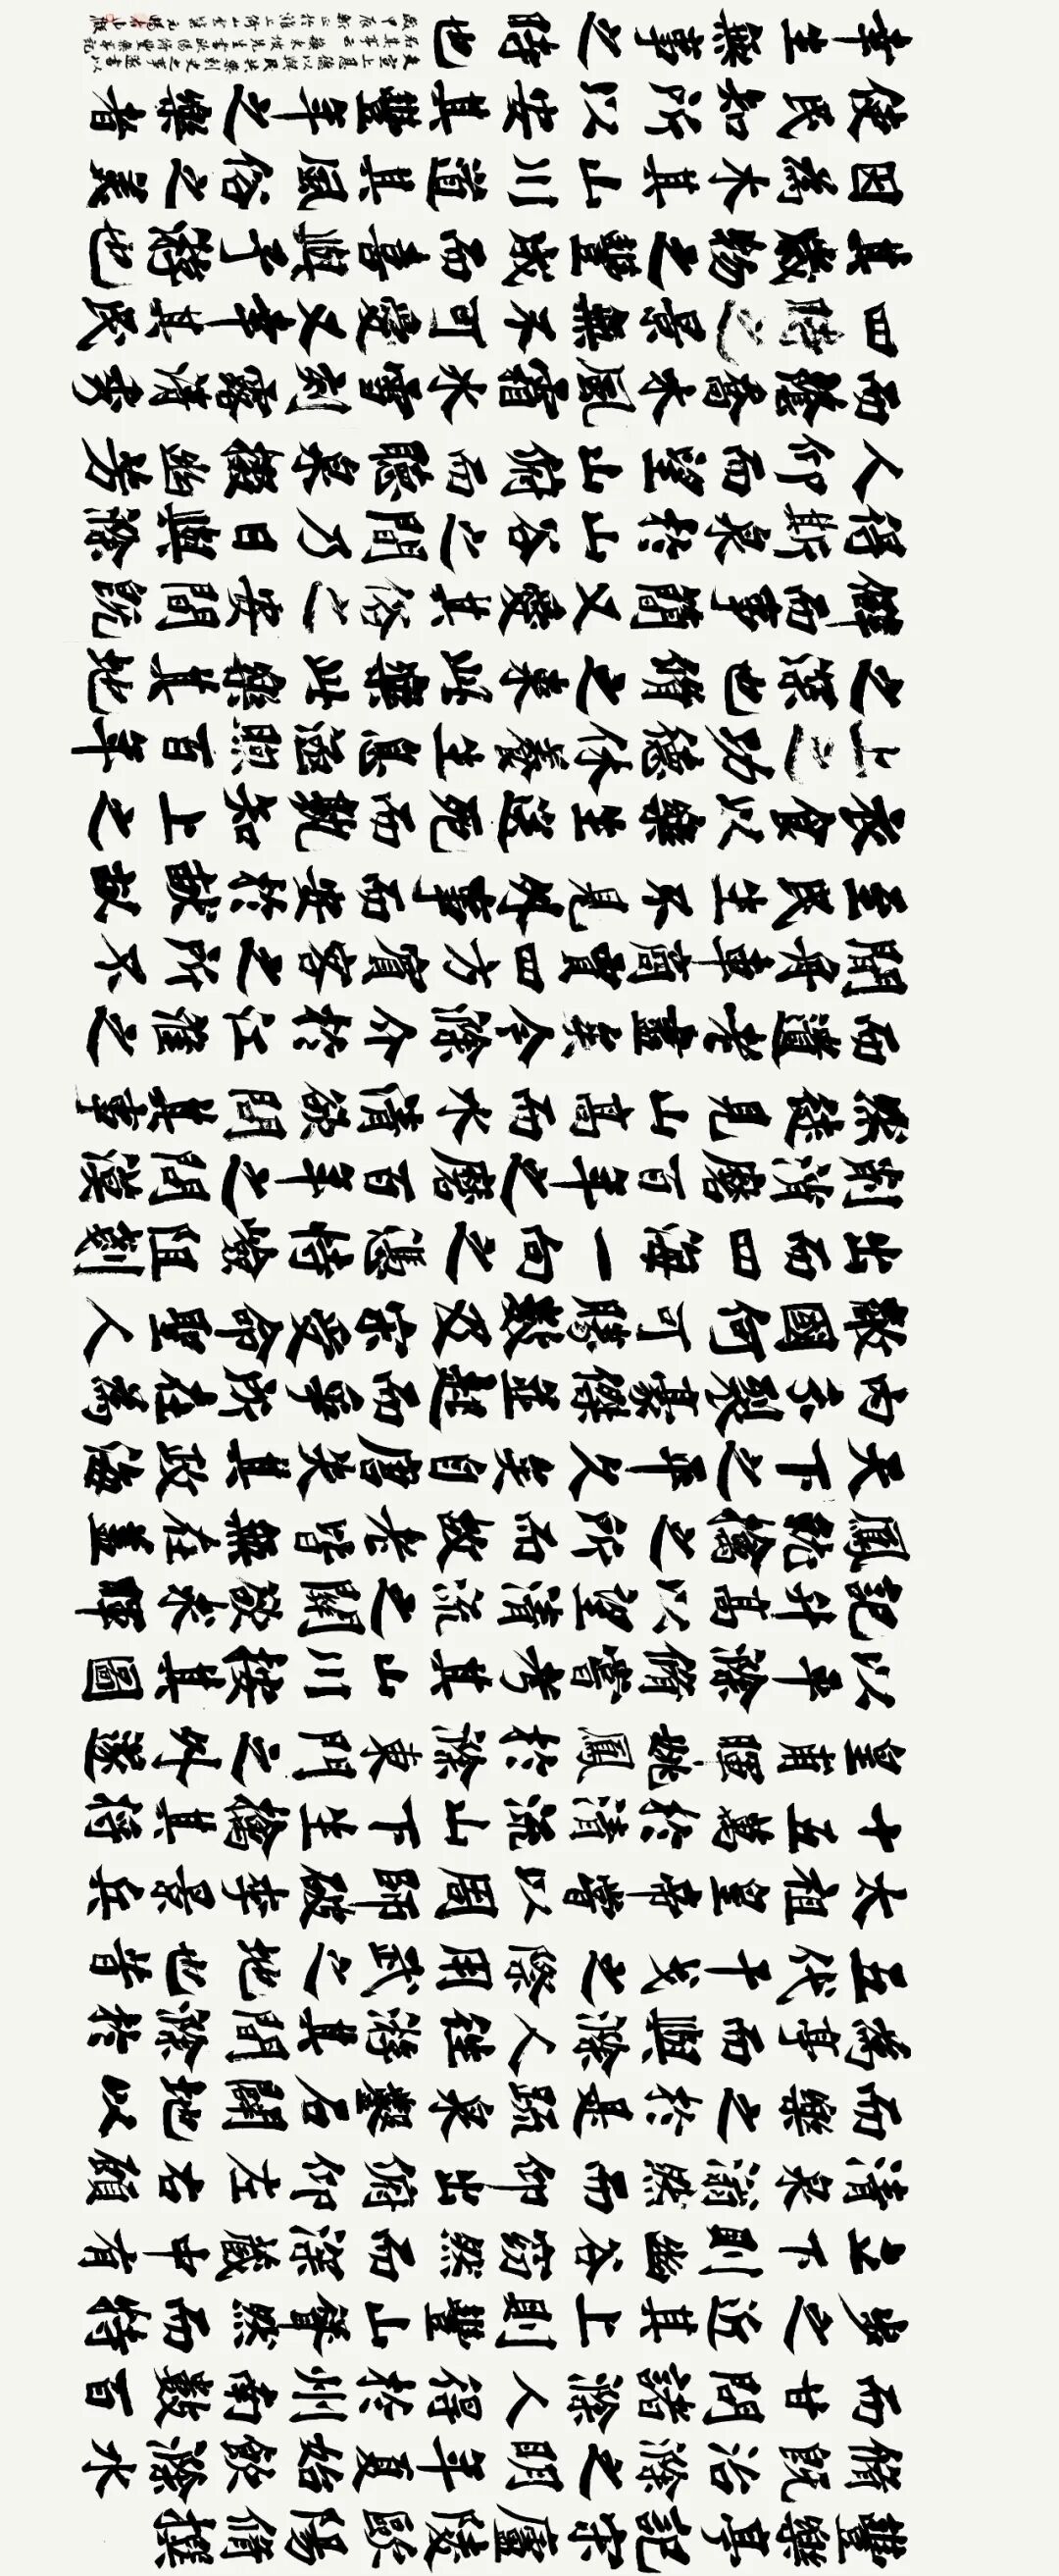 豐樂亭記宋廬陵歐陽脩撰
脩既治滁之明年夏始飲滁水
而甘問諸滁人得於州南數百
步之近其上則豐山聳然而特
立下則幽谷窈然而深藏中有
清泉滃然而仰出俯仰左右顧
而樂之於是疏泉鑿石闢地以
為亭而與滁人往游其間滁於
五代干戈之際用武之地也昔
太祖皇帝嘗以周師破李景兵
十五萬於清流山下生擒其將
皇甫暉姚鳳於滁東門之外遂
以平滁脩嘗考其山川按其圖
記升高以望清流之關欲求暉
鳳就擒之所而故老皆無在蓋
天下之平久矣自唐失其政海
內分裂豪傑並起而爭所在為
敵國何可勝數及宋受命聖人
出而四海一向之憑恃險阻剗
削消磨百年之磨百年之間漠
然徒見山高而水清欲問其事
而遺老盡矣今滁介於江淮之
間舟車商賈四方賓客之所不
至民生不見外事而安於
衣食以樂生送死而孰知上之
上之功德休養生息涵煦百年
之深也脩之來此樂此樂其地
僻而事簡又愛其俗之安閒既
得斯泉於山谷之間乃日與滁
人仰而望山俯而聽泉掇幽芳
而蔭喬木風霜冰雪刻露清秀
四時之景無不可愛又幸其民
其歲物之豐成而喜與予游也
因為本其山川道其風俗之美
使民知所以安其豐年之樂者
幸生無事之時也
夫宣上恩德以與民共樂刺史之事遂書以